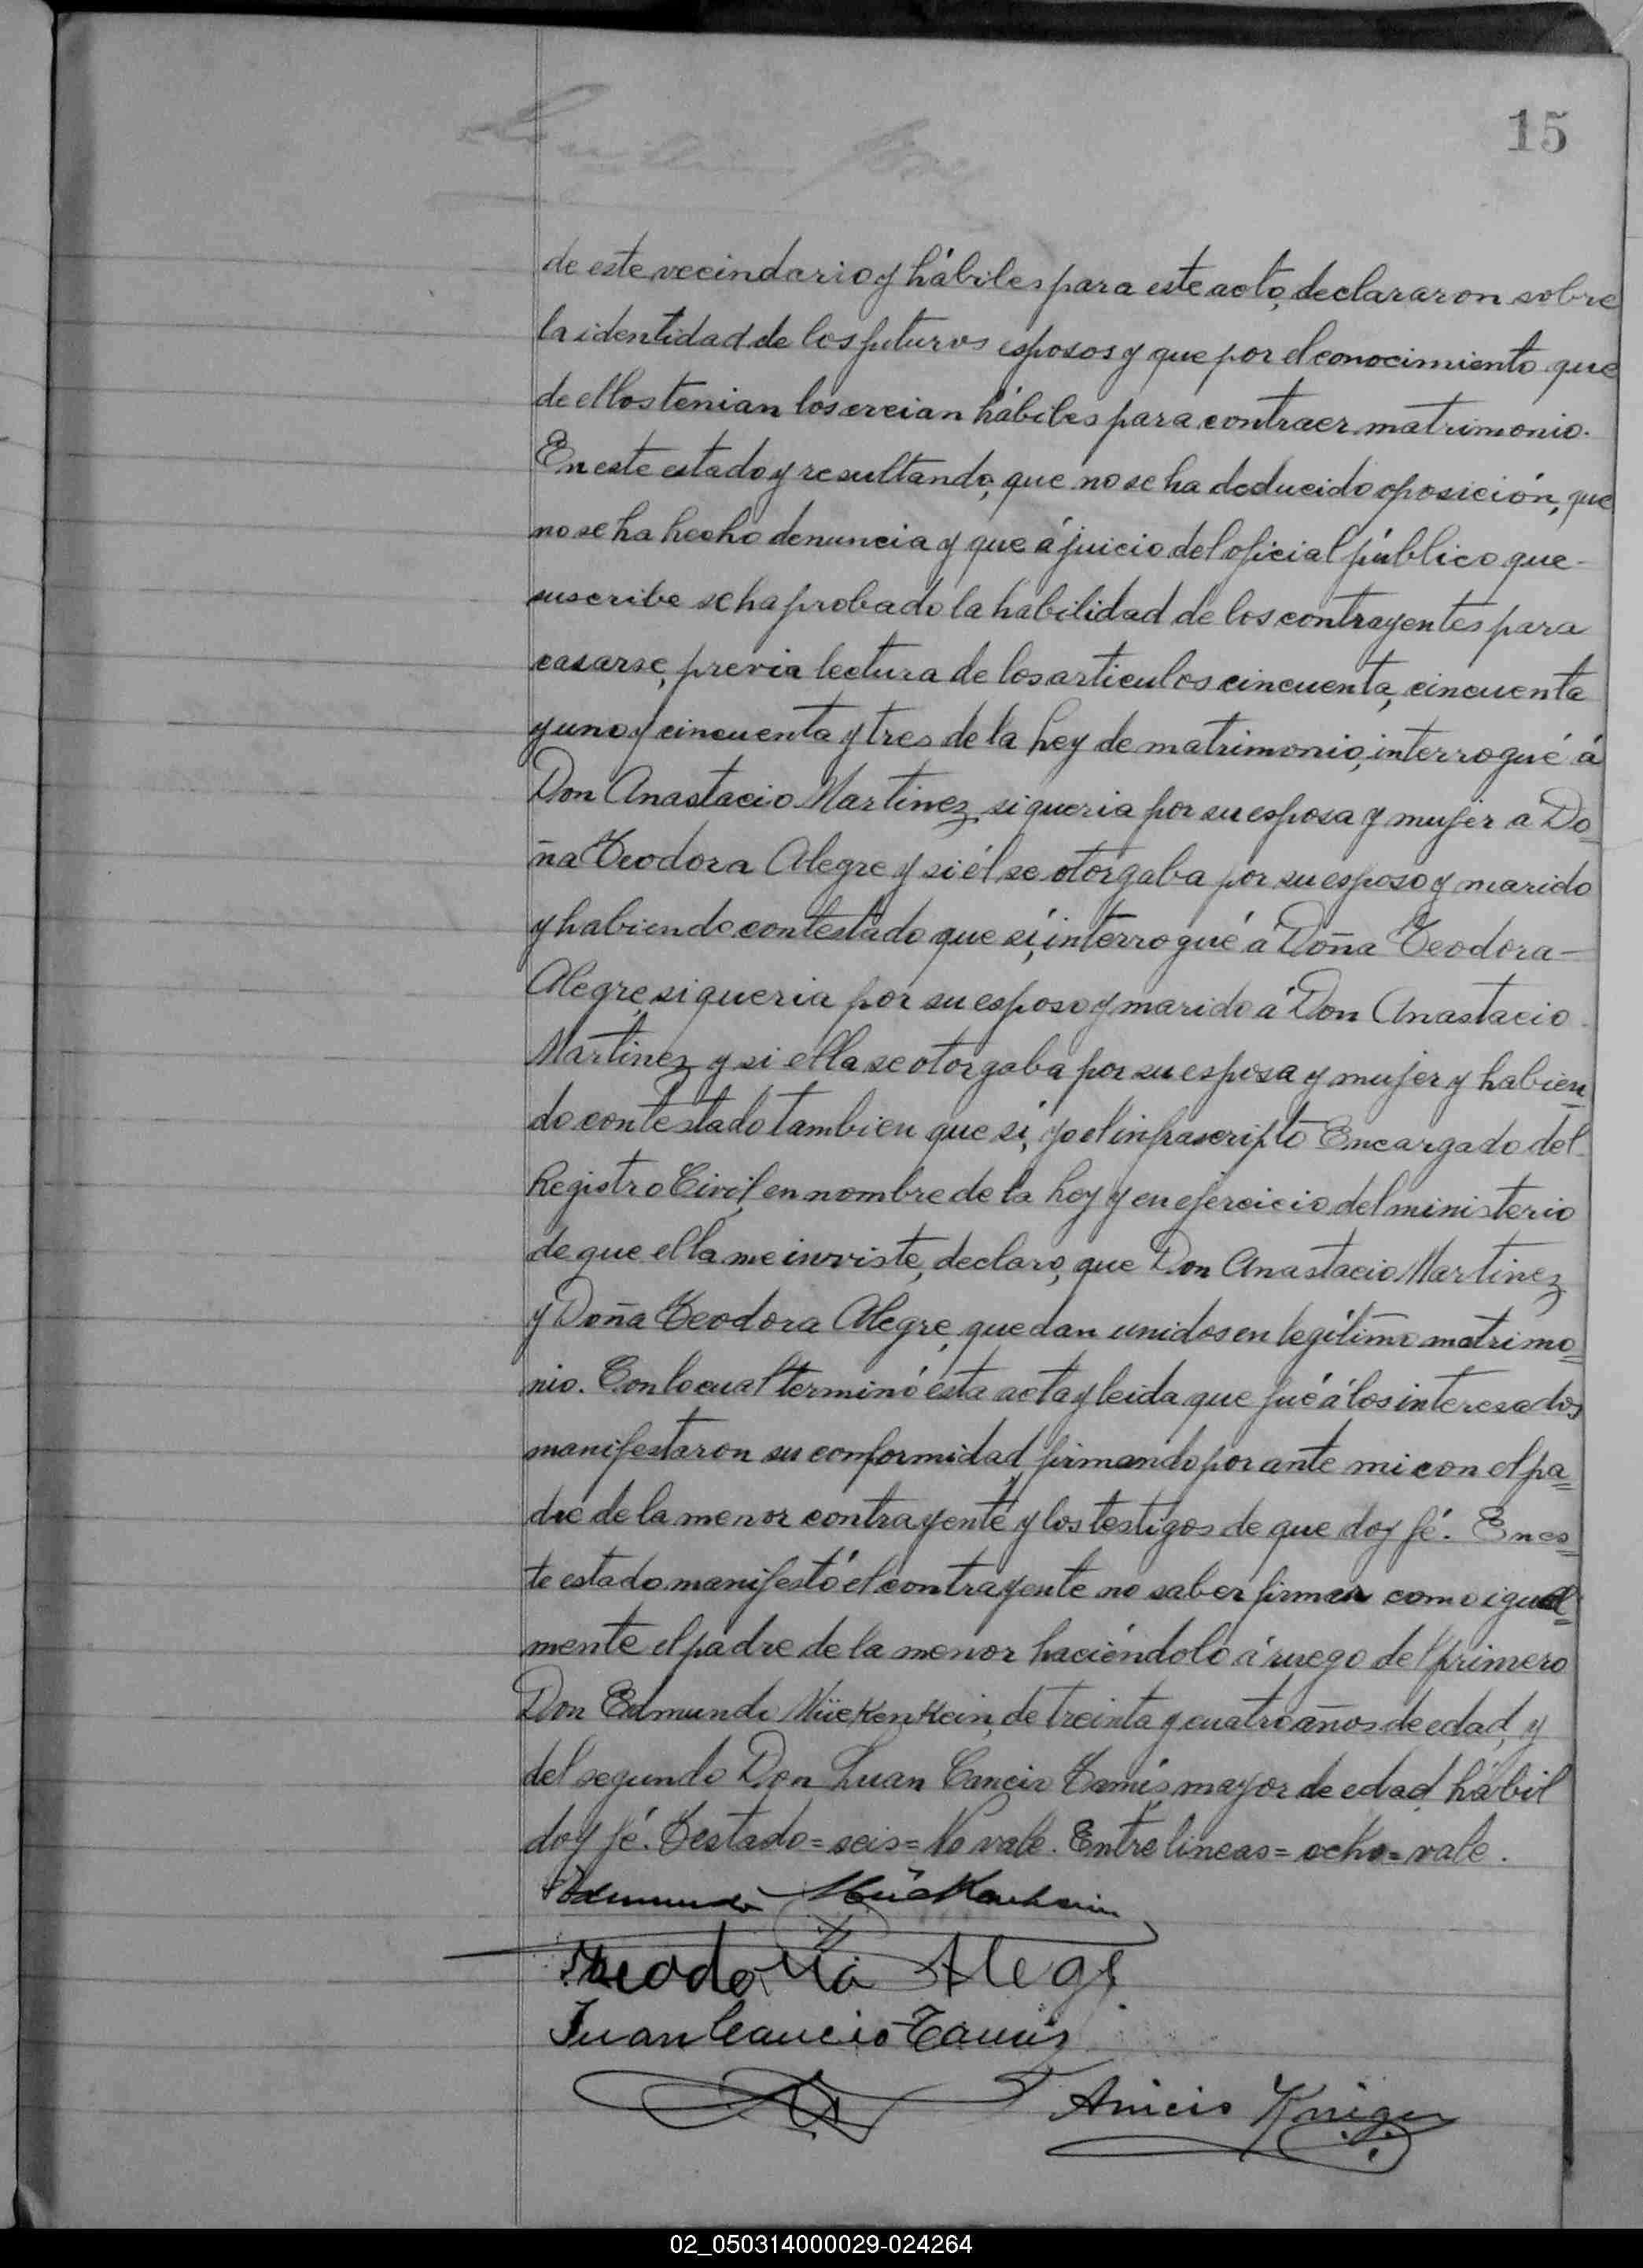 15
de este vecindario y hábiles para este acto, declararon sobre
la identidad de los futuros esposos y que por el conocimiento que
de ellos tenian los creian hábiles para contraer matrimonio.
En este estado y resultando, que no se ha deducido oposición, que
no se ha hecho denuncia y que á juicio del oficial público que
suscribe se ha probado la habilidad de los contrayentes para
casarse, previa lectura de los articulos cincuenta, cincuenta
y uno y cincuenta y tres de la Ley de matrimonio, interrogué á
Don Anastacio Martinez, si queria por su esposa y mujer a Do=
ña Teodora Alegre y si él se otorgaba por su esposo y marido
y habiendo contestado que sí, interrogué á Doña Teodora -
Alegre, si queria por su esposo y marido á Don Anastacio
Martinez y si ella se otorgaba por su esposa y mujer y habien=
do contestado tambien que sí, yo el infrascripto Encargado del
Registro Civil, en nombre de la Ley y en ejercicio del ministerio
de que ella me inviste, declaro, que Don Anastacio Martinez
y Doña Teodora Alegre, quedan unidos en legítimo matrimo=
nio. Con lo cual terminó esta acta y leida que fué á los interesados
manifestaron su conformidad firmando por ante mi con el pa=
dre de la menor contrayente y los testigos de que doy fé. En es=
te estado manifestó el contrayente no saber firmar como igual=
mente el padre de la menor haciéndolo á ruego del primero
Don Edmundo Mückenheim, de treinta y cuatro años de edad, y
del segundo Don Juan Cancio Tamis, mayor de edad, hábil
doy fé. Testado = seis = No vale. Entre lineas = ocho = vale.
Edmundo Mückenheim
Theodora Alegr
Juan Cancio Tamis
Anicio Kruger
02_050314000029-024264